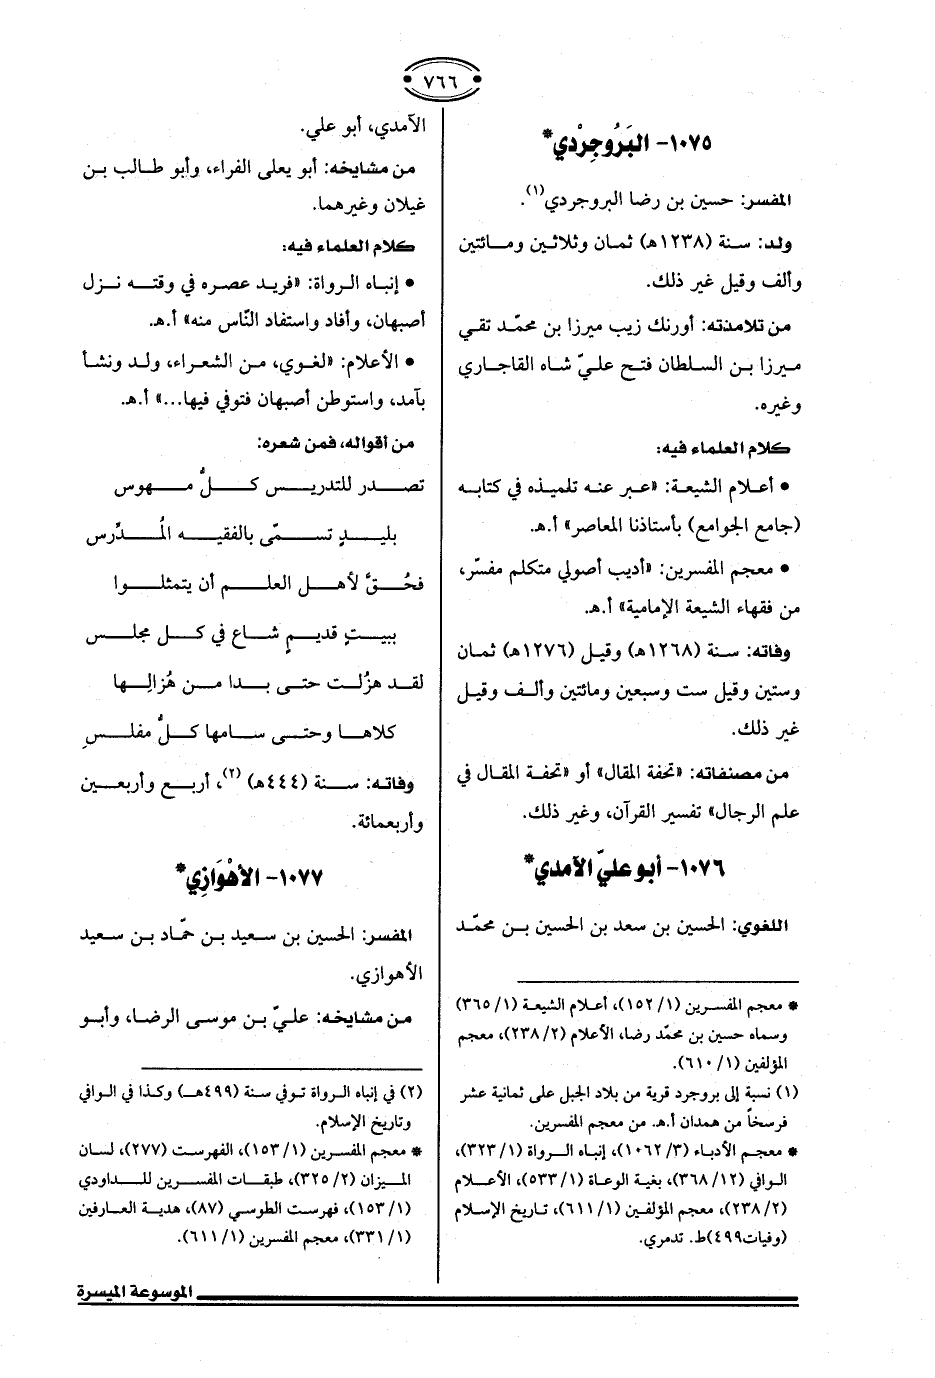 ٧٦٦
١٠٧٥- البَرُوجِرْدي*
المفسر: حسين بن رضا البروجردي(١).
ولد: سنة (١٢٣٨هـ) ثمان وثلاثين ومائتين
وألف وقيل غير ذلك.
من تلامذته: أورنك زيب ميرزا بن محمّد تقي
ميرزا بن السلطان فتح عليّ شاه القاجاري
وغيره.
كلام العلماء فيه:
• أعلام الشيعة: «عبر عنه تلميذه في كتابه
(جامع الجوامع) بأستاذنا المعاصر» أ.هـ.
• معجم المفسرين: «أديب أصولي متكلم مفسّر،
من فقهاء الشيعة الإمامية» أ.هـ.
وفاته: سنة (١٢٦٨هـ) وقيل (١٢٧٦هـ) ثمان
وستين وقيل ست وسبعين ومائتين وألف وقيل
غير ذلك.
من مصنفاته: «تحفة المقال» أو «تحفة المقال في
علم الرجال» تفسير القرآن، وغير ذلك.
١٠٧٦- أبو عليّ الآمدي*
اللغوي: الحسين بن سعد بن الحسين بن محمّد
* معجم المفسرين (١/ ١٥٢)، أعلام الشيعة (١/ ٣٦٥)
وسماه حسين بن محمّد رضا، الأعلام (٢/ ٢٣٨)، معجم
المؤلفين (١/ ٦١٠).
(١) نسبة إلى بروجرد قرية من بلاد الجبل على ثمانية عشر
فرسخاً من همدان أ.هـ. من معجم المفسرين.
* معجم الأدباء (٣/ ١٠٦٢)، إنباه الرواة (١/ ٣٢٣)،
الوافي (١٢/ ٣٦٨)، بغية الوعاة (١/ ٥٣٣)، الأعلام
(٢/ ٢٣٨)، معجم المؤلفين (١/ ٦١١)، تاريخ الإسلام
(وفيات٤٩٩)ط. تدمري.
الآمدي، أبو علي.
من مشايخه: أبو يعلى الفراء، وأبو طالب بن
غيلان وغيرهما.
كلام العلماء فيه:
• إنباه الرواة: «فريد عصره في وقته نزل
أصبهان، وأفاد واستفاد النّاس منه» أ.هـ.
• الأعلام: «لغوي، من الشعراء، ولد ونشأ
بآمد، واستوطن أصبهان فتوفي فيها...» أ.هـ.
من أقواله، فمن شعره:
تصدر للتدريس كلُّ مهوس
بليدٍ تسمّى بالفقيه المُدَّرس
فحُقَّ لأهل العلم أن يتمثلوا
ببيتٍ قديمٍ شاع في كل مجلس
لقد هزُلت حتى بدا من هُزالِها
كلاها وحتى سامها كلُّ مفلسِ
وفاته: سنة (٤٤٤هـ) (٢)، أربع وأربعين
وأربعمائة.
١٠٧٧- الأهْوَازِي*
المفسر: الحسين بن سعيد بن حمّاد بن سعيد
الأهوازي.
من مشايخه: عليّ بن موسى الرضا، وأبو
(٢) في إنباه الرواة توفي سنة (٤٩٩هـ) وكذا في الوافي
وتاريخ الإسلام.
* معجم المفسرين (١/ ١٥٣)، الفهرست (٢٧٧)، لسان
الميزان (٢/ ٣٢٥)، طبقات المفسرين للداودي
(١/ ١٥٣)، فهرست الطوسي (٨٧)، هدية العارفين
(١/ ٣٣١)، معجم المفسرين (١/ ٦١١).
الموسوعة الميسرة